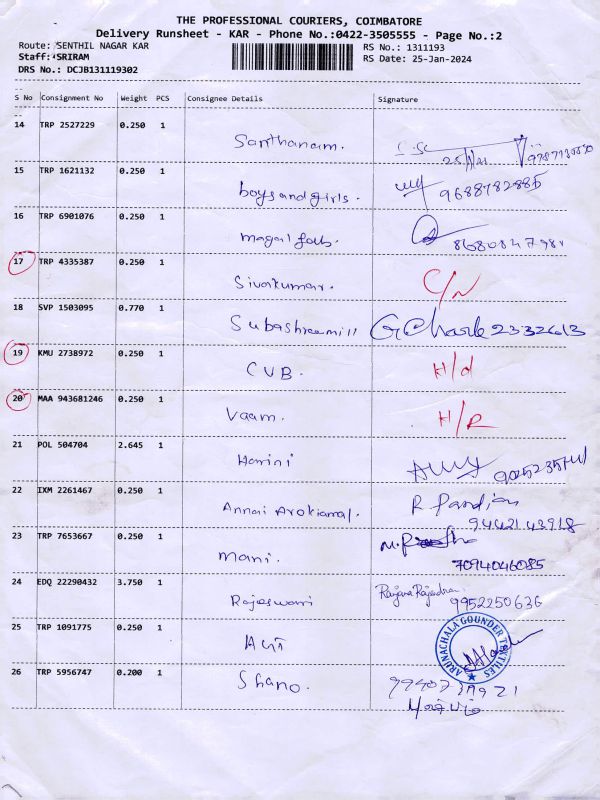 THE PROFESSIONAL COURIERS, COIMBATORE
Delivery Runsheet - KAR - Phone No.:0422-3505555 - Page No.:2
Route: SENTHIL NAGAR KAR RS No.: 1311193
Staff: SRIRAM RS Date: 25-Jan-2024
DRS No.: DCJB131119302
S No Consignment No Weight PCS Consignee Details Signature
14 TRP 2527229 0.250 1
Santhanam.
15 TRP 1621132 0.250 1
boys and girls. 9688782885
16 TRP 6901076 0.250 1
17 TRP 4335387 0.250 1
Sivakumar. C/N
18 SVP 1503095 0.770 1
2332613
19 KMU 2738972 0.250 1
CVB. H/d
20 MAA 943681246 0.250 1
Vaam. H/R
21 POL 504704 2.645 1
Harini
22 IXM 2261467 0.250 1
R Pandian
Annai Arokiamal. 9442143918
23 TRP 7653667 0.250 1
Mani. 7094046085
24 EDQ 22290432 3.750 1
Rajeswari 9952250636
25 TRP 1091775 0.250 1
ARUNACHALA GOUNDER TEXTILES
26 TRP 5956747 0.200 1
Shano.